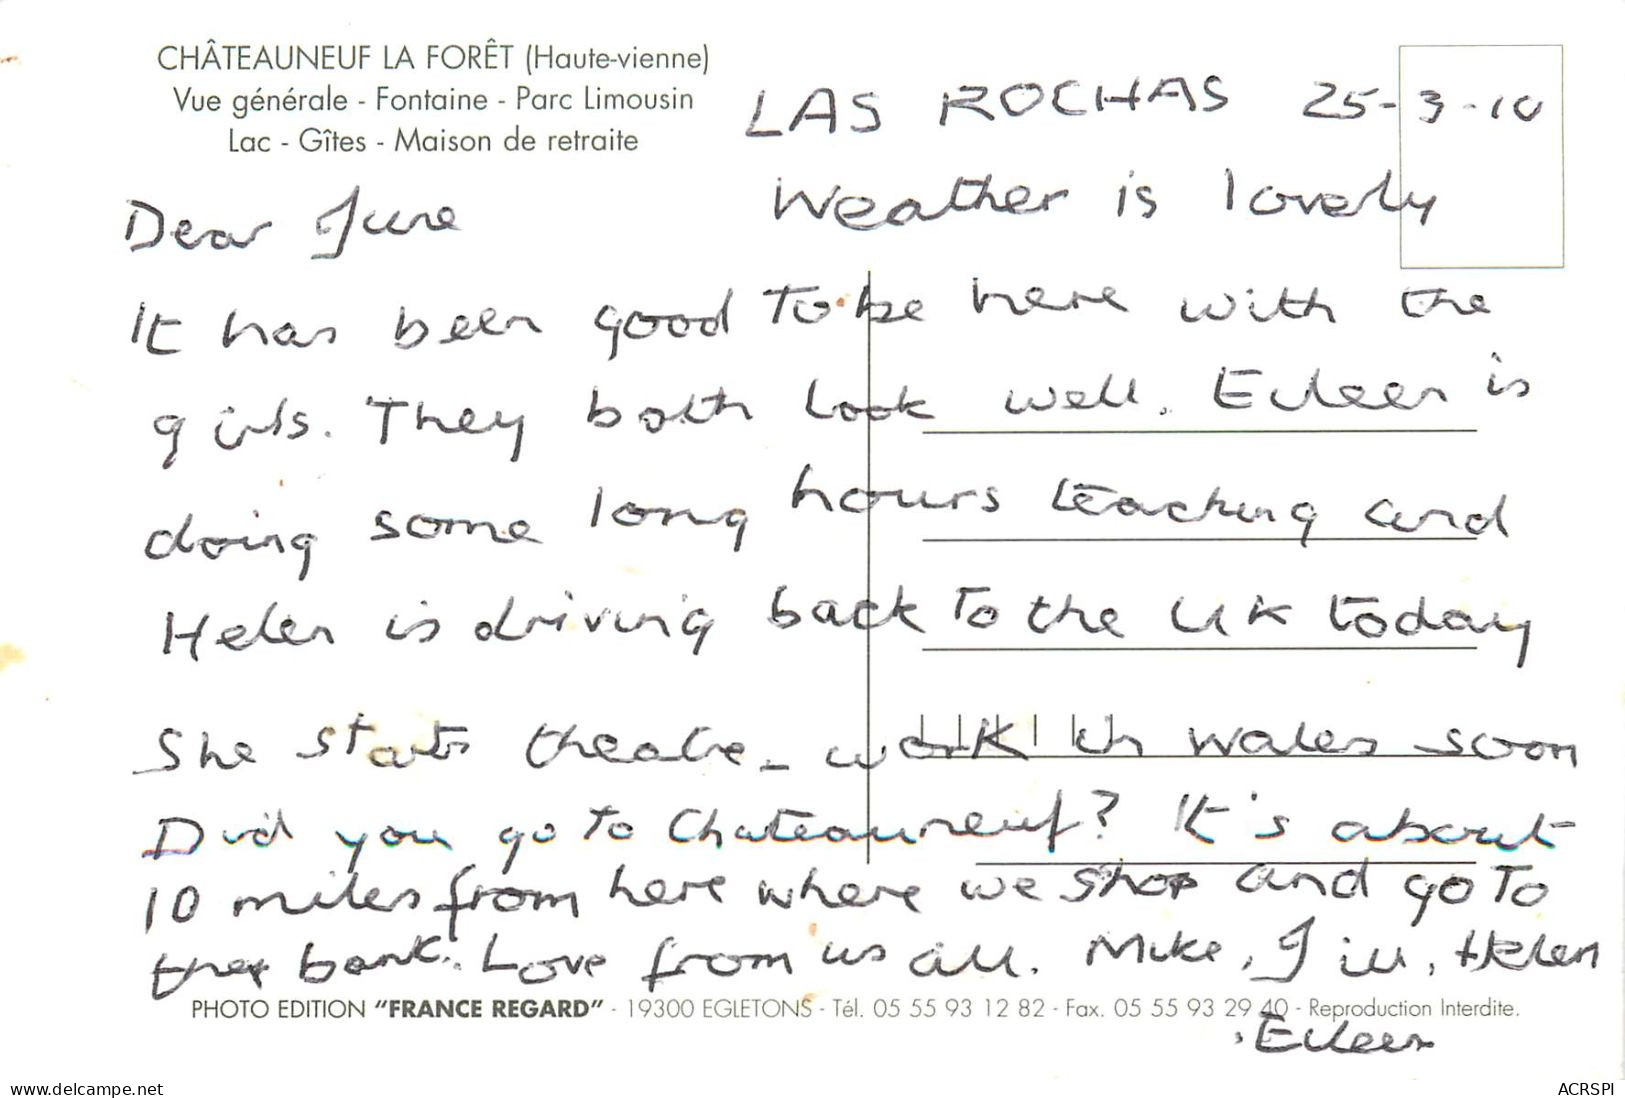 CHÂTEAUNEUF LA FORÊT (Haute-vienne)
Vue générale - Fontaine - Parc Limousin
Lac - Gîtes - Maison de retraite
LAS ROCHAS 25-3-10
Weather is lovely
Dear June
It has been good to be here with the
girls. They both look well. Eileen is
doing some long hours teaching and
Helen is driving back to the UK today
She starts theatre - work in Wales soon
Did you go to Chateauneuf? It's about
10 miles from here where we shop and go to
the bank. Love from us all. Mike, Jill, Helen
, Eileen
PHOTO EDITION "FRANCE REGARD" - 19300 EGLETONS - Tél. 05 55 93 12 82 - Fax. 05 55 93 29 40 - Reproduction Interdite.
www.delcampe.net
ACRSPI